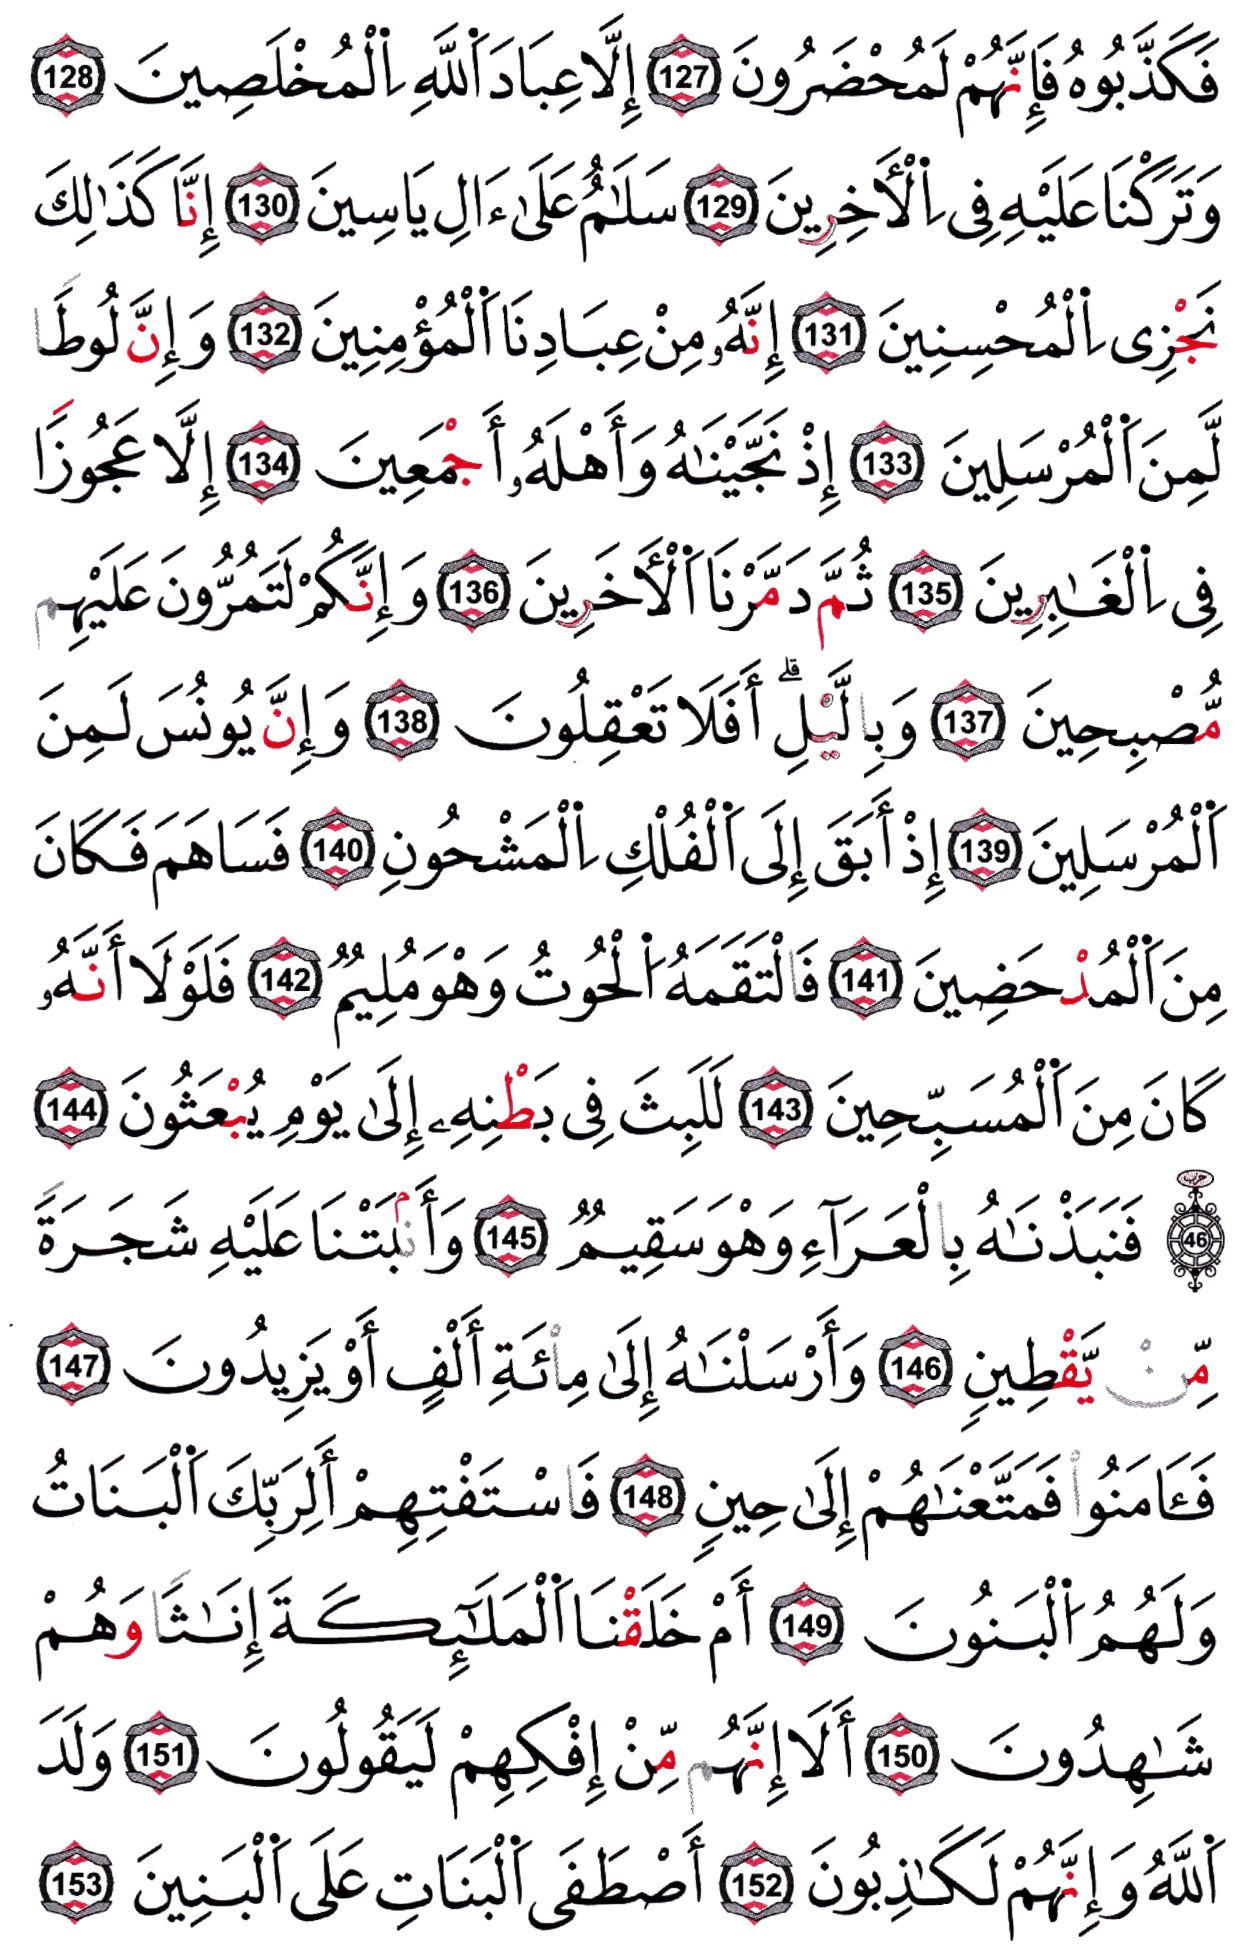 فَكَذَّبُوهُ فَإِنَّهُمْ لَمُحْضَرُونَ 127 إِلَّا عِبَادَ اَ۬للَّهِ اِ۬لْمُخْلَصِينَ 128
وَتَرَكْنَا عَلَيْهِ فِى اِ۬لْأَخِرِينَ 129 سَلَٰمٌ عَلَىٰ ءَالِ يَاسِينَ 130 إِنَّا كَذَٰلِكَ
نَجْزِى اِ۬لْمُحْسِنِينَ 131 إِنَّهُۥ مِنْ عِبَادِنَا اَ۬لْمُؤْمِنِينَ 132 وَإِنَّ لُوطًا
لَّمِنَ اَ۬لْمُرْسَلِينَ 133 إِذْ نَجَّيْنَٰهُ وَأَهْلَهُۥ أَجْمَعِينَ 134 إِلَّا عَجُوزًا
فِى اِ۬لْغَٰبِرِينَ 135 ثُمَّ دَمَّرْنَا اَ۬لْأَخَرِينَ 136 وَإِنَّكُمْ لَتَمُرُّونَ عَلَيْهِم
مُّصْبِحِينَ 137 وَبِالَّيْلِ ۗ أَفَلَا تَعْقِلُونَ 138 وَإِنَّ يُونُسَ لَمِنَ
اَ۬لْمُرْسَلِينَ 139 إِذْ أَبَقَ إِلَى اَ۬لْفُلْكِ اِ۬لْمَشْحُونِ 140 فَسَاهَمَ فَكَانَ
مِنَ اَ۬لْمُدْحَضِينَ 141 فَالْتَقَمَهُ اُ۬لْحُوتُ وَهْوَ مُلِيمٌ 142 فَلَوْلَا أَنَّهُۥ
كَانَ مِنَ اَ۬لْمُسَبِّحِينَ 143 لَلَبِثَ فِى بَطْنِهِۦ إِلَىٰ يَوْمِ يُبْعَثُونَ 144
حزب 46 فَنَبَذْنَٰهُ بِالْعَرَآءِ وَهْوَ سَقِيمٌ 145 وَأَنۢبَتْنَا عَلَيْهِ شَجَرَةً
مِّنْ يَّقْطِينٍ 146 وَأَرْسَلْنَٰهُ إِلَىٰ مِا۟ئَةِ أَلْفٍ أَوْ يَزِيدُونَ 147
فَـَٔامَنُوا۟ فَمَتَّعْنَٰهُمْ إِلَىٰ حِينٍ 148 فَاسْتَفْتِهِمْ أَلِرَبِّكَ اَ۬لْبَنَاتُ
وَلَهُمُ اُ۬لْبَنُونَ 149 أَمْ خَلَقْنَا اَ۬لْمَلَٰٓئِكَةَ إِنَٰثًا وَهُمْ
شَٰهِدُونَ 150 أَلَا إِنَّهُم مِّنْ إِفْكِهِمْ لَيَقُولُونَ 151 وَلَدَ
اَ۬للَّهُ وَإِنَّهُمْ لَكَٰذِبُونَ 152 أَصْطَفَى اَ۬لْبَنَاتِ عَلَى اَ۬لْبَنِينَ 153